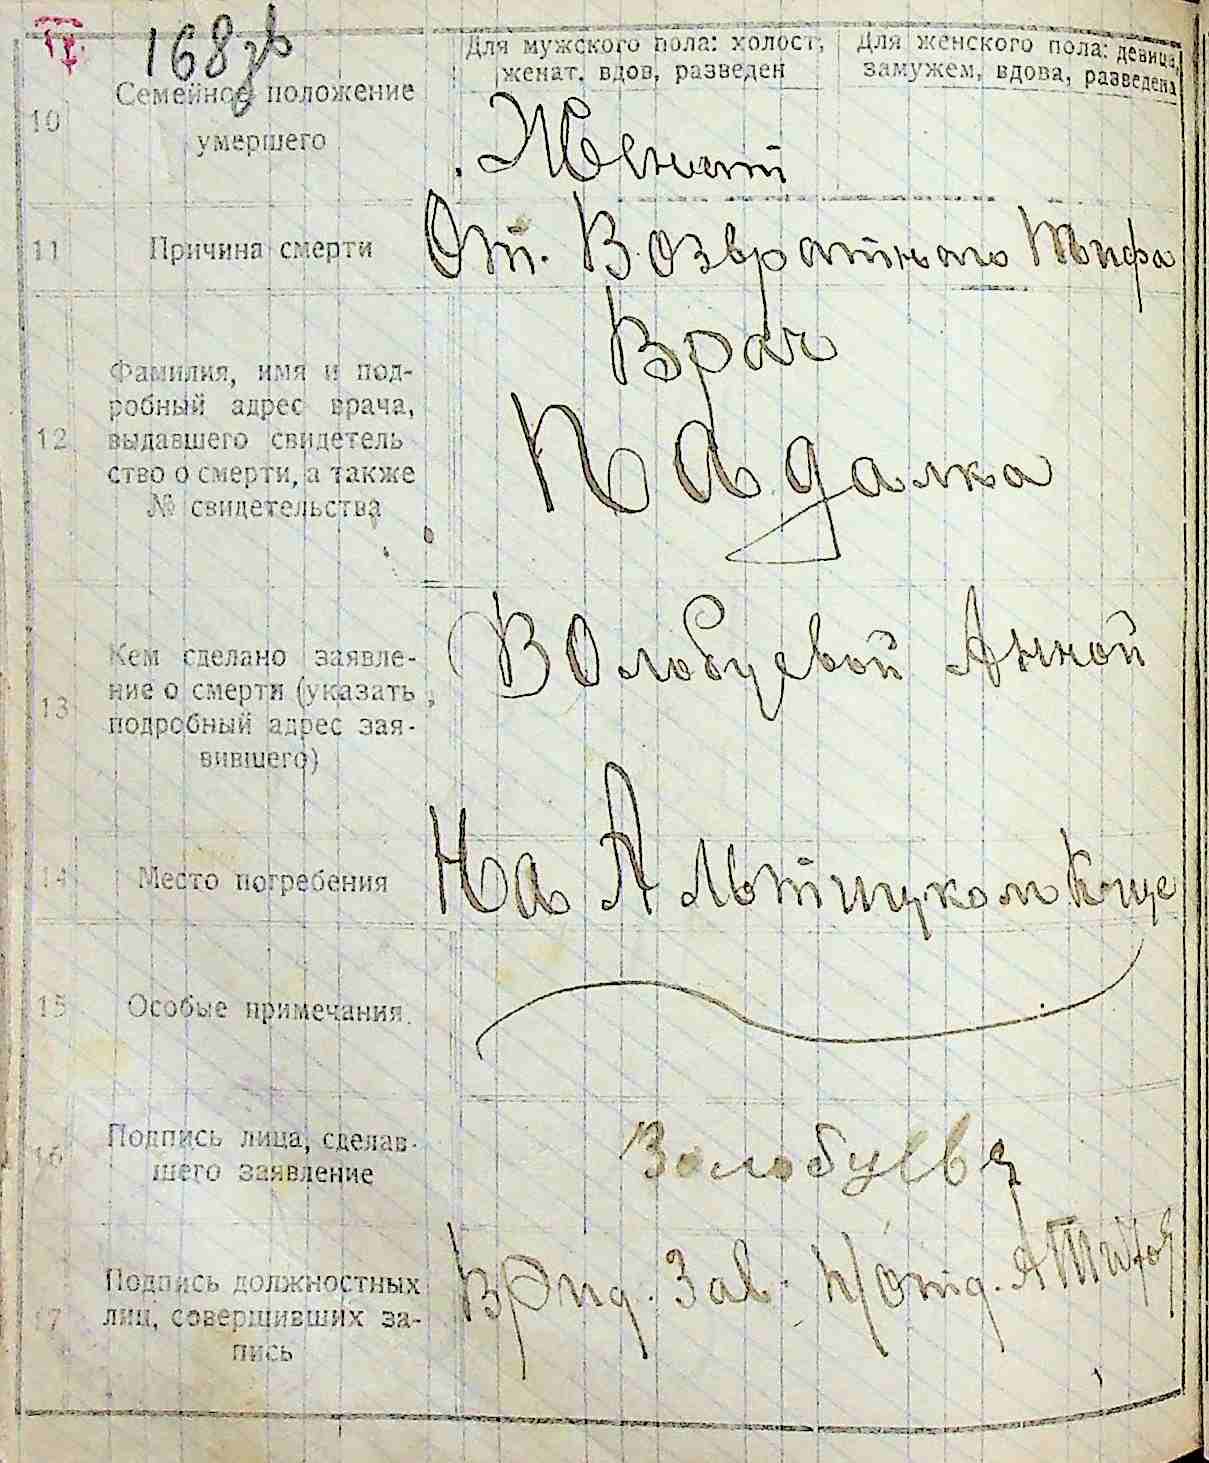 168зв
Для мужского пола: холост, женат, вдов, разведен
Для женского пола: девица, замужем, вдова, разведена
10
Семейное положение умершего
Женат
11
Причина смерти
От. Возвратного Тифа
12
Фамилия, имя и под-
робный адрес врача,
выдавшего свидетель
ство о смерти, а также
№ свидетельства
Врач
Падалка
13
Кем сделано заявле-
ние о смерти (указать
подробный адрес зая-
вившего)
Волобуевой Анной
14
Место погребения
На
15
Особые примечания
16
Подпись лица, сделав-
шего заявление
Волобуева
17
Подпись должностных
лиц, совершивших за-
пись
Врид. Зав.